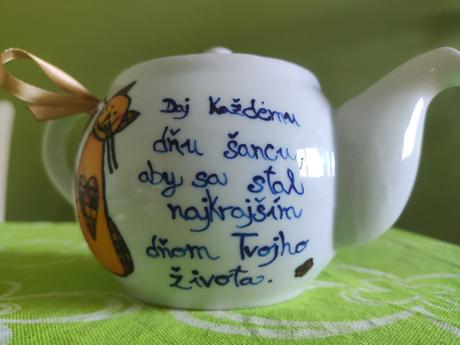 Daj každému
dňu šancu,
aby sa stal
najkrajším
dňom Tvojho
života.